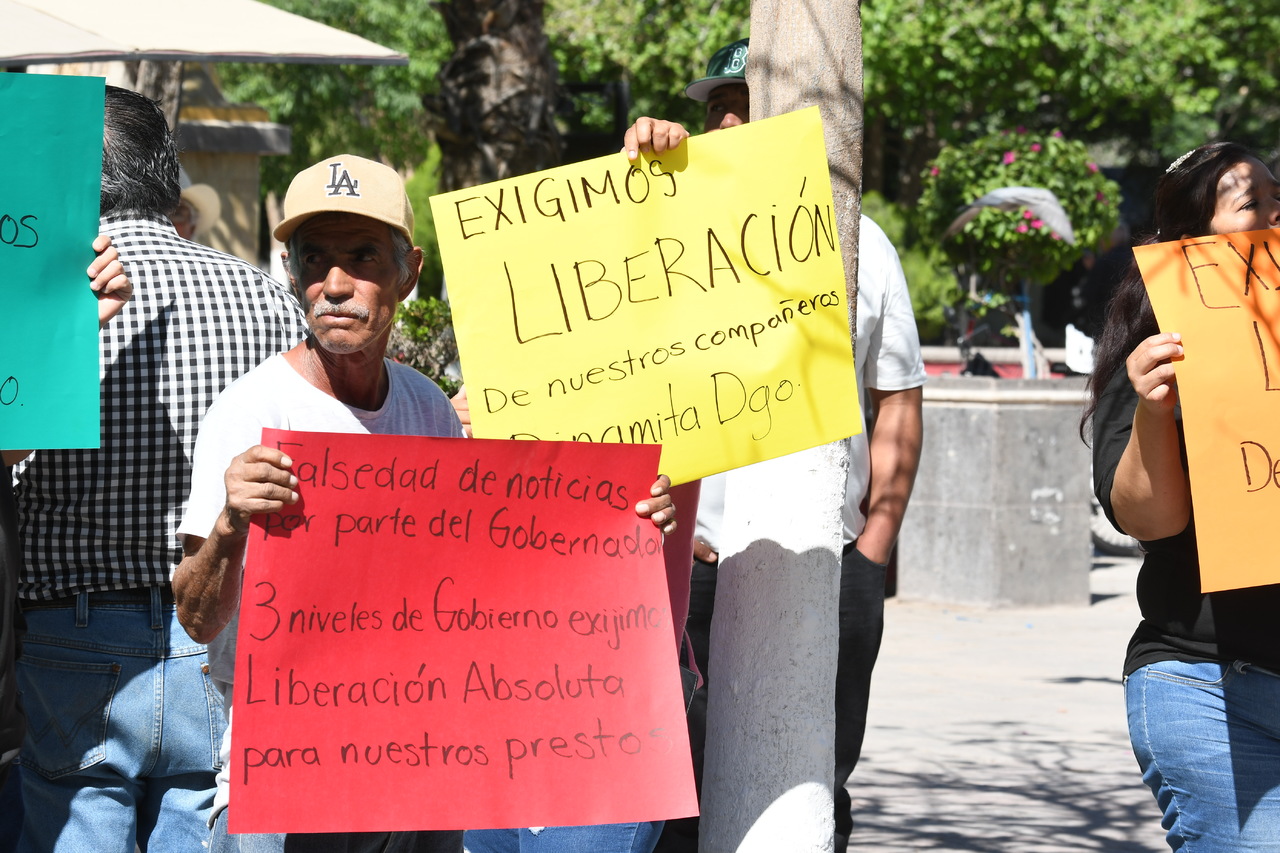 os
o.
LA
B
EXIGIMOS
LIBERACIÓN
De nuestros compañeros
Dinamita Dgo.
Falsedad de noticias
por parte del Gobernador
3 niveles de Gobierno exijimo
Liberación Absoluta
para nuestros prestos
EXI
L
De